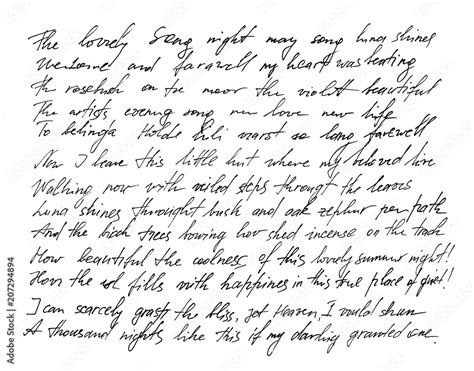 The lovely Song night may song luna shines
Welcome and farewell my heart was beating
Th rosebush on the moor the violet beautiful
The artists evening song new love new life
To belinda Holde Lili warst so lang farewell
Now I leave this little hut where my beloved live
Walking now with veiled steps throught the leaves
Luna shines throught bush and oak zephur per path
And the birch trees bowing low shed incense on the track
How beautiful the coolness of this lovely summer night!
How the soul fills with happiness in this true place of quiet!!
I can scarcely grasp the bliss, yet Heaven, I would shun
A thousand nights like this if my darling granted one.
Adobe Stock | #207294894